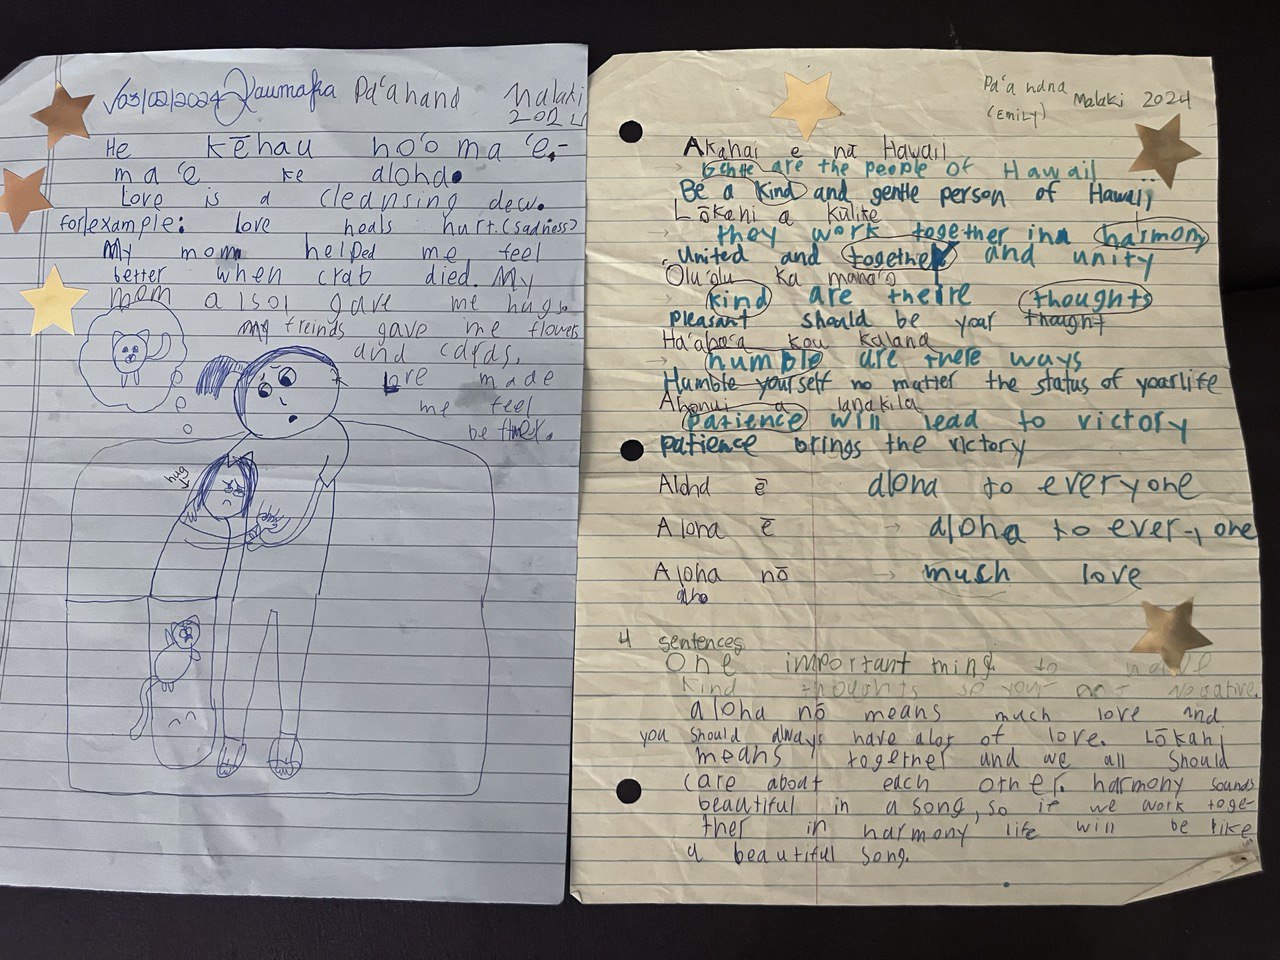 03/02/2024 Kaumaka Pa'ahana Malaki 2024
He kēhau ho'oma'e,-
ma'e ke aloha.
Love is a cleansing dew.
for/example: love heals hurt.(sadness)
My mom helped me feel
better when crab died. My
mom alsol gave me hugs.
my freinds gave me flowers
and cards.
love made
me feel
better.
hug
Pa'a hana
(EMILY) Malaki 2024
Akahai e nā Hawaii
Gentle are the people of Hawaii
Be a kind and gentle person of Hawaii
Lōkahi a kūlike
they work together in a harmony
United and together and unity
'Olu'olu ka mana'o
kind are theire thoughts
Pleasant should be your thought
Ha'aha'a kou kalana
humble are there ways
Humble yourself no matter the status of your life
Ahonui a lanakila
patience will lead to victory
patience brings the victory
Aloha ē aloha to everyone
Aloha ē → aloha to every one
Aloha nō → much love
aho
4 sentences
One important thing to
kind thoughts so your not negative.
aloha nō means much love and
you should always have alot of love. Lōkahi
means together and we all should
care about each other. harmony sounds
beautiful in a song, so if we work toge-
ther in harmony life will be like
a beautiful song.